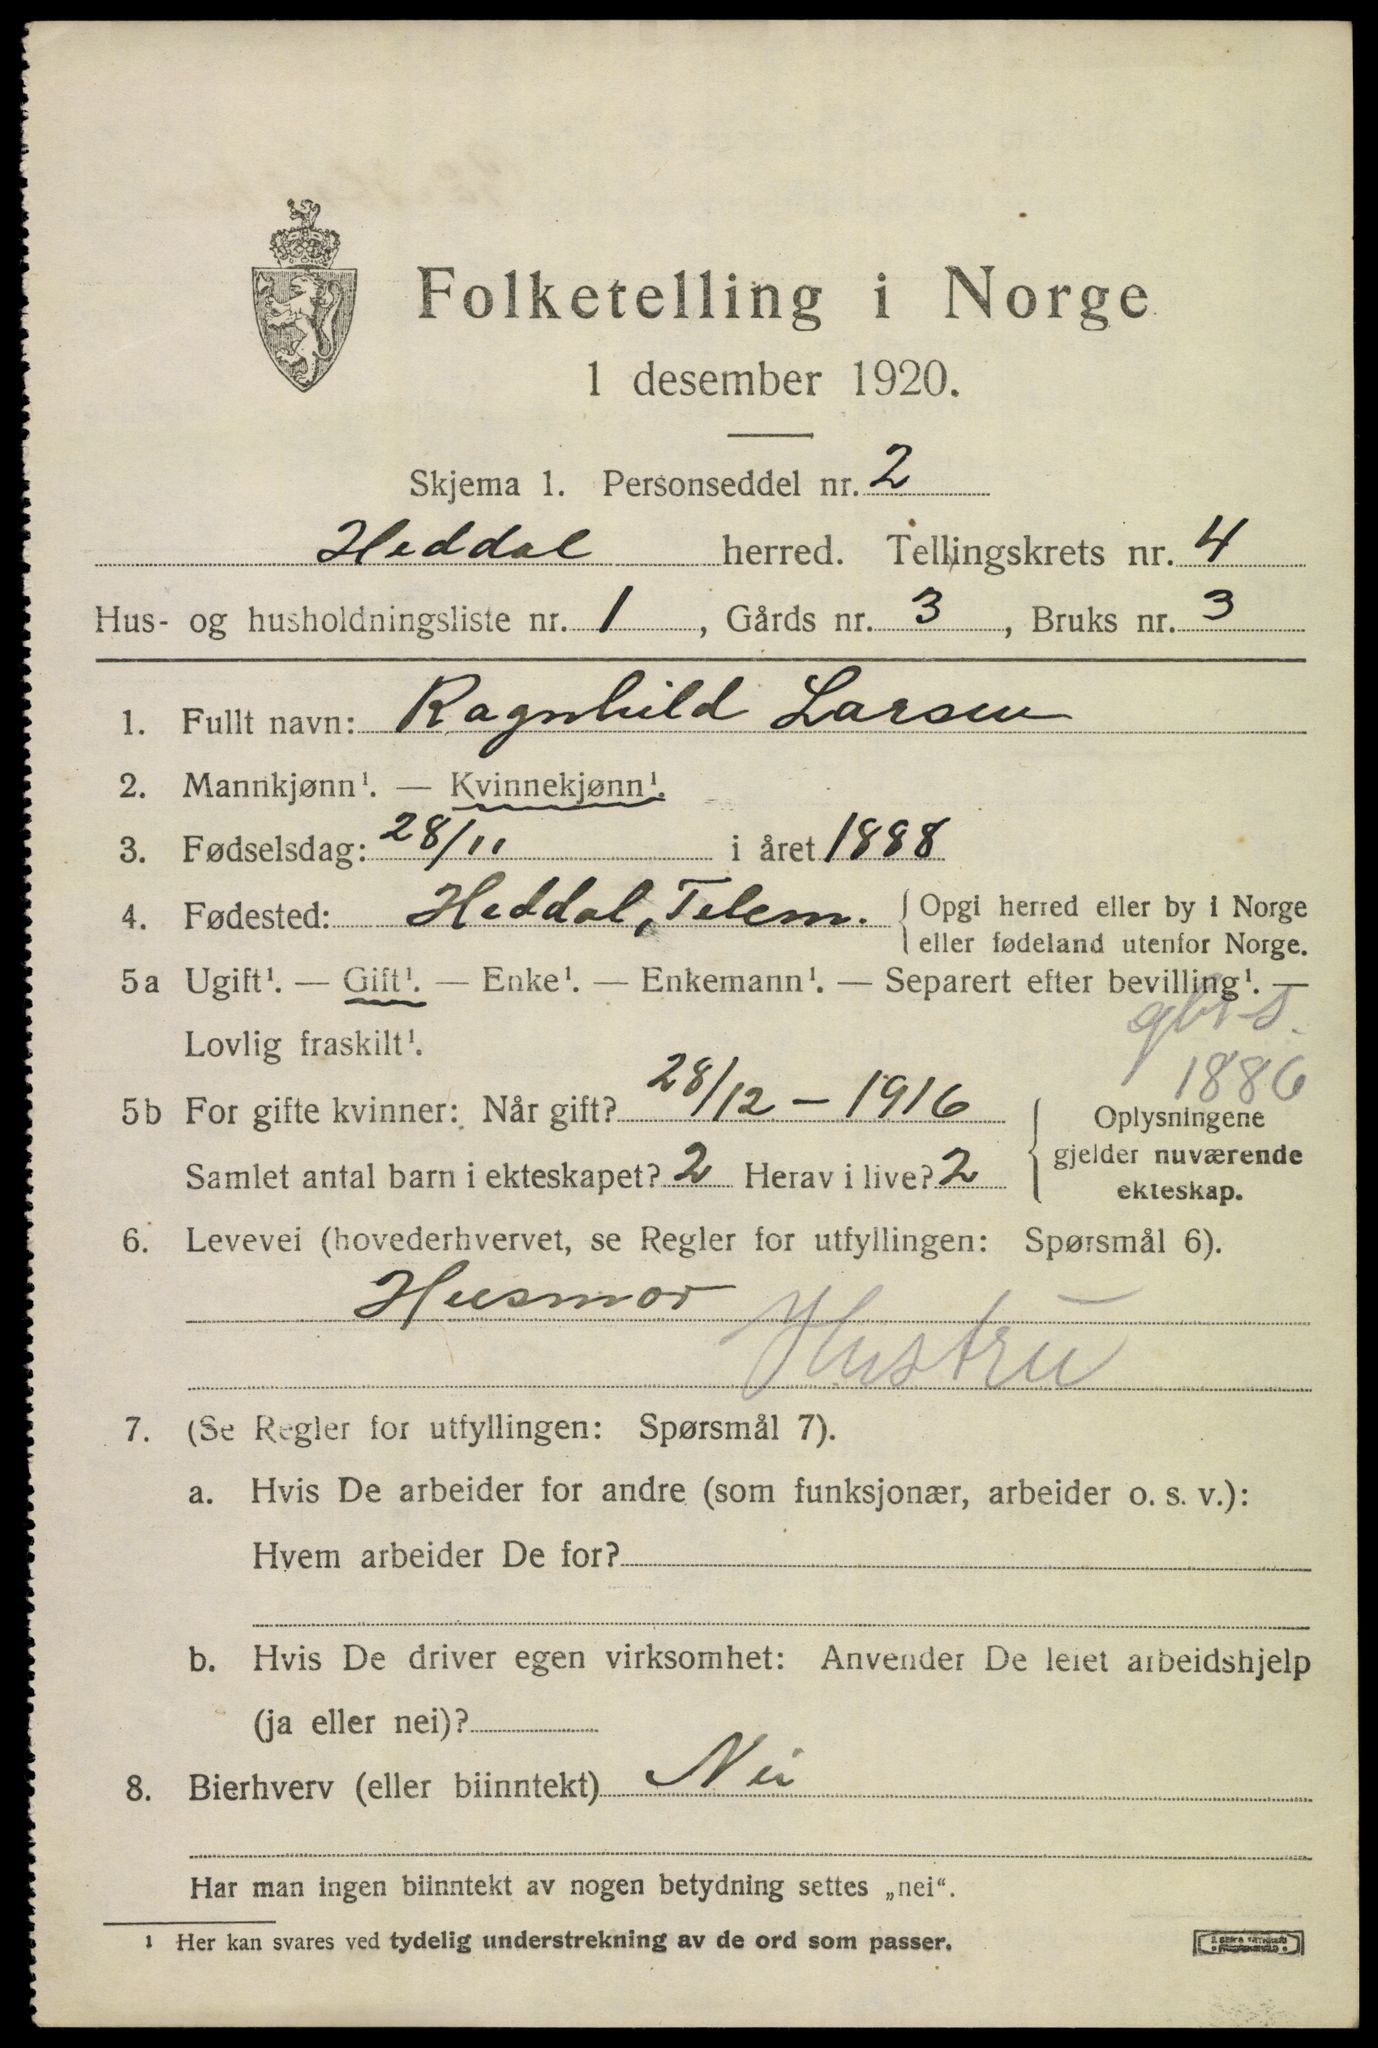 Folketelling i Norge
1 desember 1920.
Skjema 1. Personseddel nr. 2
Heddal herred. Tellingskrets nr. 4
Hus- og husholdningsliste nr. 1, Gårds nr. 3, Bruks nr. 3
1. Fullt navn: Ragnhild Larsen
2. Mannkjønn¹. — Kvinnekjønn¹.
3. Fødselsdag: 28/11 i året 1888
4. Fødested: Heddal, Telem. Opgi herred eller by i Norge
eller fødeland utenfor Norge.
5a Ugift¹. — Gift¹. — Enke¹. — Enkemann¹. — Separert efter bevilling¹. —
Lovlig fraskilt¹.
1886
5b For gifte kvinner: Når gift? 28/12 – 1916
Samlet antal barn i ekteskapet? 2 Herav i live? 2
Oplysningene
gjelder nuværende
ekteskap.
6. Levevei (hovederhvervet, se Regler for utfyllingen: Spørsmål 6).
Husmor
Hustru
7. (Se Regler for utfyllingen: Spørsmål 7).
a. Hvis De arbeider for andre (som funksjonær, arbeider o. s. v.):
Hvem arbeider De for?
b. Hvis De driver egen virksomhet: Anvender De leiet arbeidshjelp
(ja eller nei)?
8. Bierhverv (eller biinntekt) Nei
Har man ingen biinntekt av nogen betydning settes „nei“.
¹ Her kan svares ved tydelig understrekning av de ord som passer.